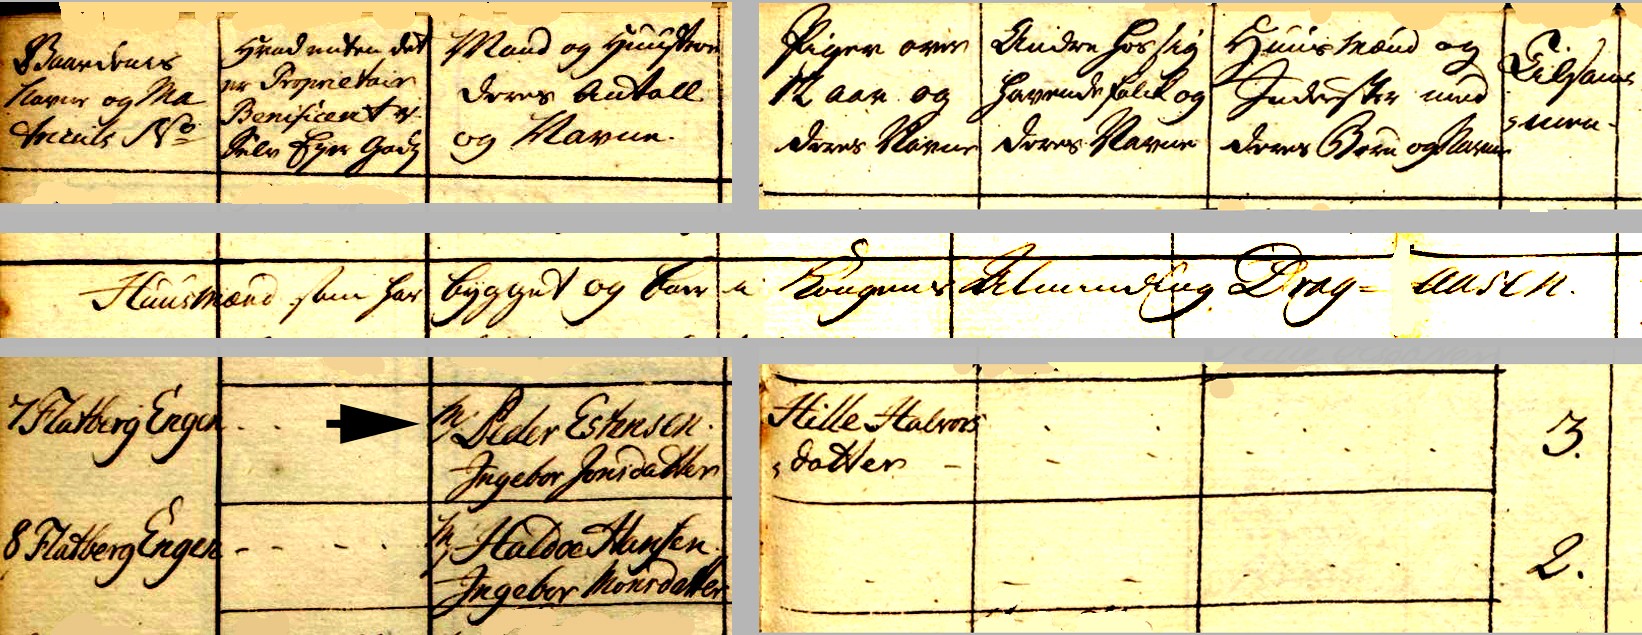 Gaardenes
Navne og Ma
tricul No
Hvad enten det
er Proprietair
Benificert
Selv Eyer Gods
Mand og Huustrue
deres Antall
og Navne.
Piger over
12 aar og
deres Navne
Andre hos sig
havende folck og
deres Navne
Huusmænd og
Inderster med
deres Børn og Navne
Tilsam
men.
Huusmænd som har bygget og boer i Kongens Almending Drag= aasen.
7 Flatberg Engen
M/ Peder Estensen.
Ingebor Jonsdatter
Hille Halvors
datter
3.
8 Flatberg Engen
M/ Haldoe Hansen
Ingebor Monsdatter
2.